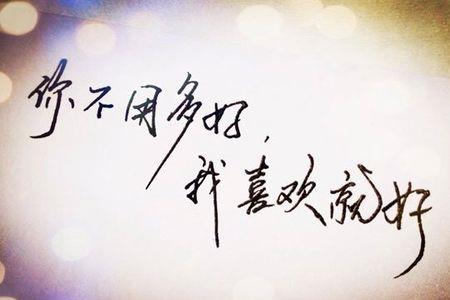 你不用多好，
我喜欢就好